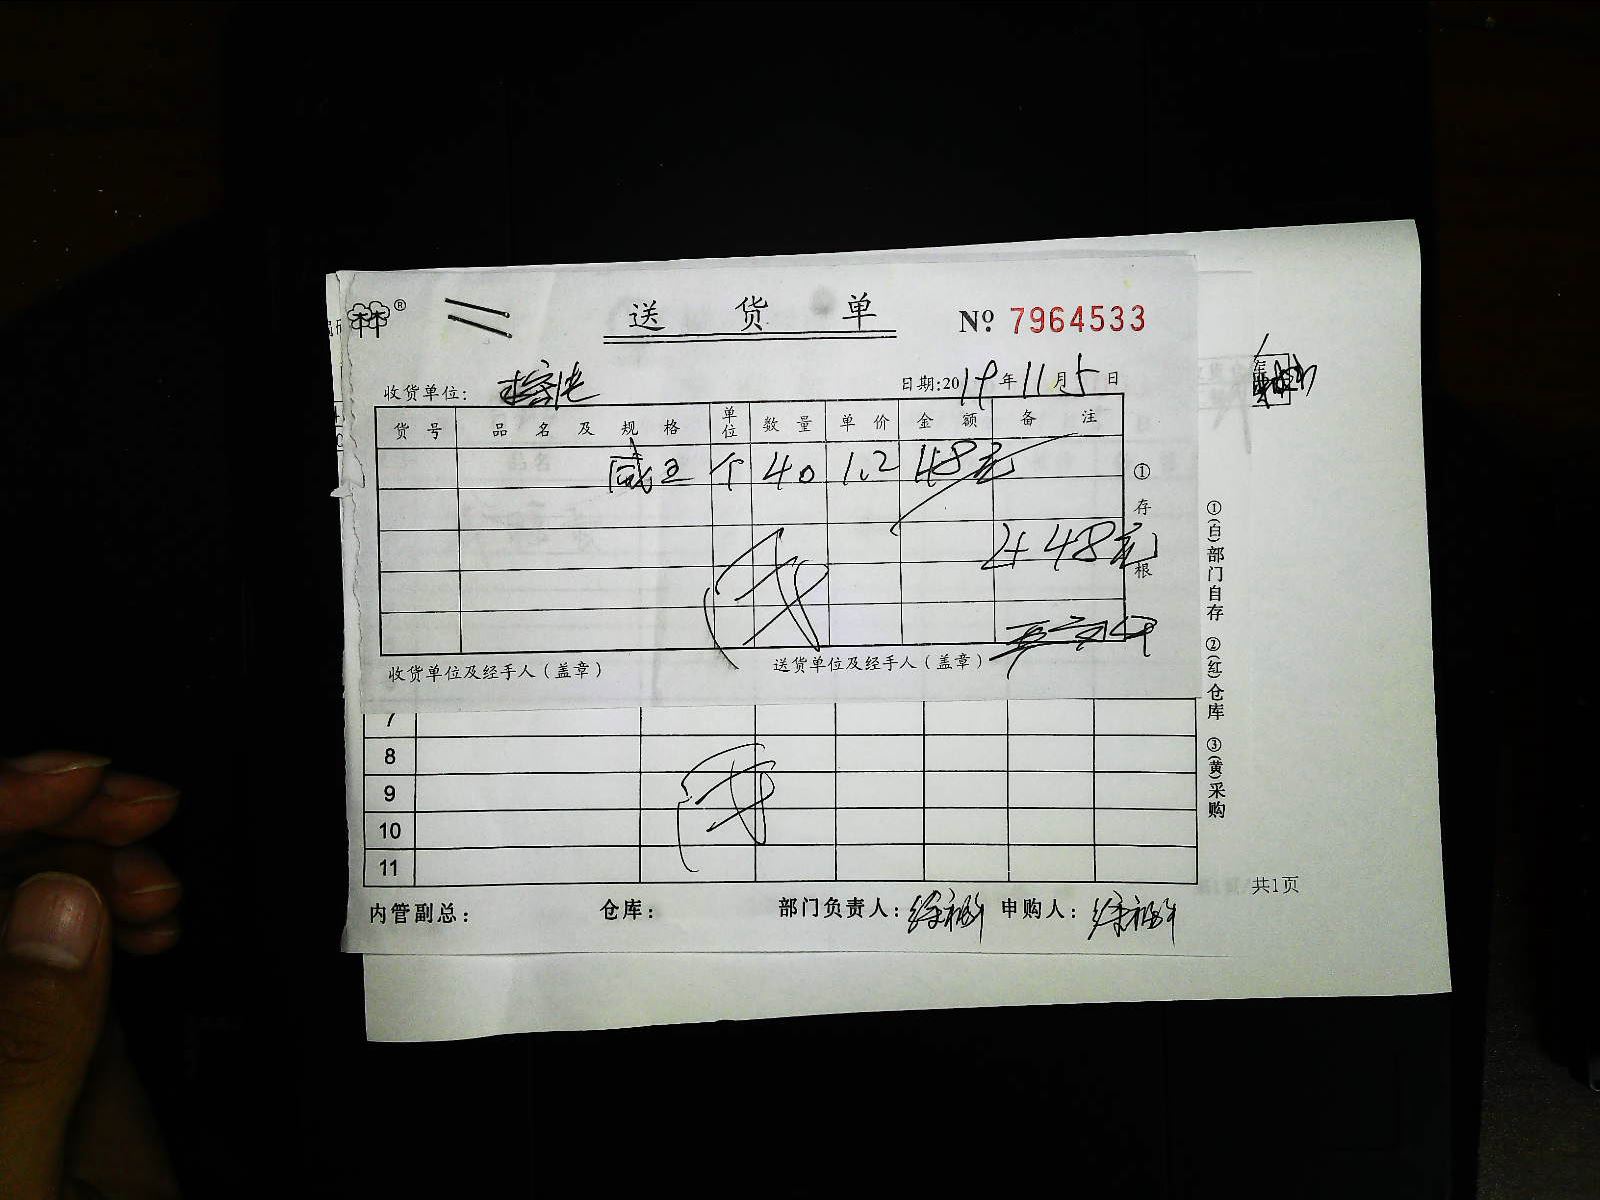 ® 送 货 单 № 7964533
收货单位: 日期:2019年11月5日
货号 品名及规格 单位 数量 单价 金额 备注
个 40 1.2 48元
① 存根
48元
收货单位及经手人(盖章) 送货单位及经手人(盖章)
7
8
9
10
11
①(白)部门自存 ②(红)仓库 ③(黄)采购
共1页
内管副总: 仓库: 部门负责人: 申购人: